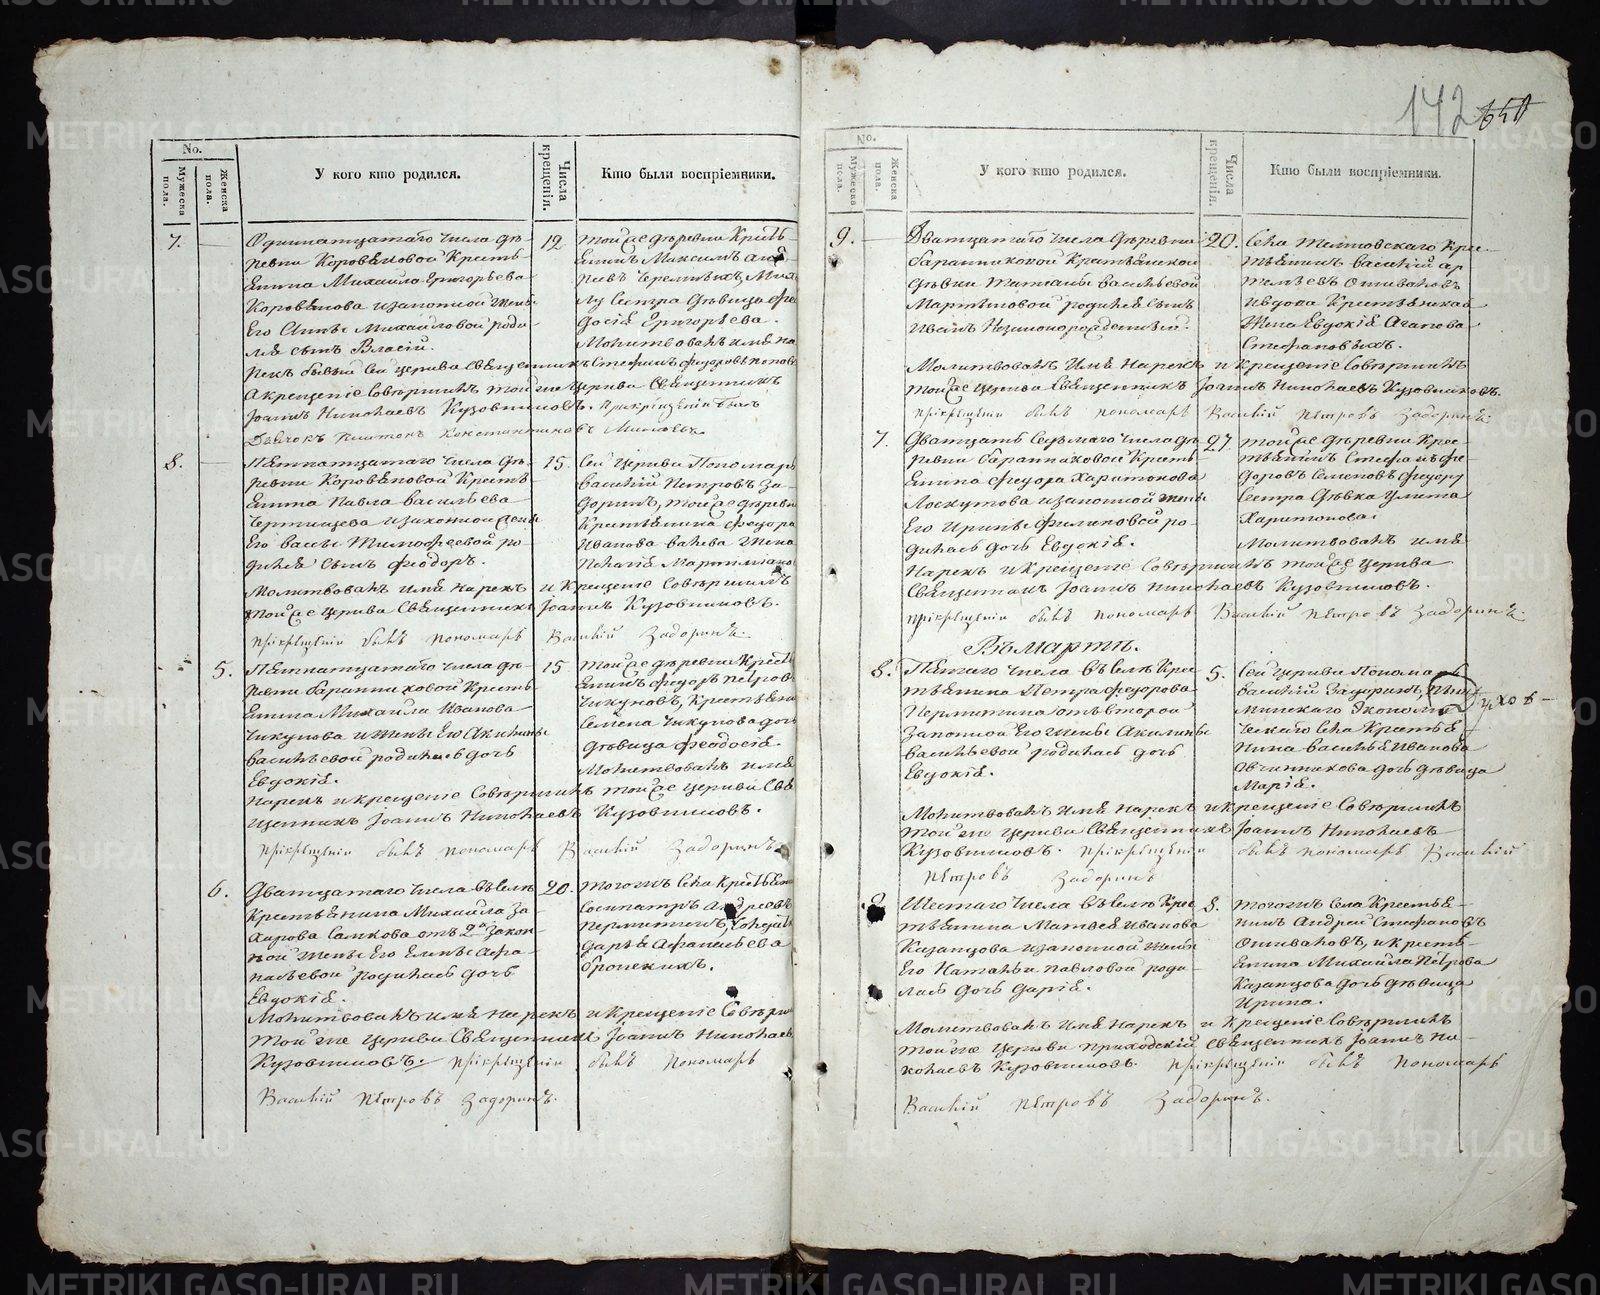 142
No.
Мужеска пола.
Женска пола.
У кого кто родился.
Числа крещенія.
Кто были воспріемники.
7.
Одиннатцатаго числа де-
ревни Коровяковой Кресть
янина Михаила Григорьева
Коровякова изаконной жены
Его Анны Михайловой роди-
ля сынъ Власій.
12
тойже деревни Кресть
янинъ Максимъ
Сестра девица Фео
досія Григорьева.
Молитвовалъ имя на
рекъ бывый сей церкви Священникъ Стефанъ Федоровъ Поповъ
а крещеніе совершилъ тойже церкви Священникъ
Іоаннъ Николаевъ Кузовниковъ. При крещеніи былъ
Дьячокъ Платонъ Константиновъ
8.
Пятнатцатаго числа де-
ревни Коровяковой Кресть
янина Павла Васильева
изаконной жены
Его Вассы Тимофеевой ро-
дился сынъ Феодоръ.
15.
Сей церкви Пономарь
Василій Петровъ За-
доринъ, тойже деревни
Крестьянина Федора
Иванова жена
Молитвовалъ имя нарекъ и Крещеніе Совершилъ
тойже церкви Священникъ Іоаннъ Кузовниковъ.
При крещеніи былъ пономарь Василій Задоринъ.
5.
Пятнатцатаго числа де-
ревни Баранниковой Кресть
янина Михаила Иванова
Чикунова и жены Его Акилины
Васильевой родилась дочь
Евдокія.
15
тойже деревни Кресть
янинъ Федоръ Петровъ
Чикуновъ, Крестьяни
Семена Чикунова дочь
девица Феодосія.
Молитвовалъ имя
нарекъ и крещеніе Совершилъ тойже церкви Свя
щенникъ Іоаннъ Николаевъ Кузовниковъ.
При крещеніи былъ пономарь Василій Задоринъ.
6.
Дватцатаго числа въ селе
Крестьянина Михайла За
харова Самкова отъ 2й закон
ной жены Его Елены Афа
насьевой родилась дочь
Евдокія.
20.
тогожъ села Крестьяни
Сосипатръ Андреевъ
Пермитинъ,
Дарья Афанасьева
Молитвовалъ имя нарекъ и крещеніе Соверши
тойже церкви Священникъ Іоаннъ Николаевъ
Кузовниковъ. При крещеніи былъ Пономарь
Василій Петровъ Задоринъ.
No.
Мужеска пола.
Женска пола.
У кого кто родился.
Числа крещенія.
Кто были воспріемники.
9.
Дватцатаго числа деревни
Баранниковой Крестьянской
девки Татьяны Васильевой
Мартьяновой родился сынъ
Иванъ Незаконорожденный.
20.
Села Крес-
тьянинъ Василій Ар
темьевъ Ошиваловъ
и вдова Крестьянская
жена Евдокія Агапова
Стефановыхъ.
Молитвовалъ Имя Нарекъ и Крещеніе Совершилъ
тойже церкви Священникъ Іоаннъ Николаевъ Кузовниковъ.
При крещеніи былъ пономарь Василій Петровъ Задоринъ.
7.
Дватцать седьмаго числа де-
ревни Баранниковой Кресть
янина Федора Харитонова
Лоскутова изаконной жены
Его Ирины Филиповой ро-
дилась дочь Евдокія.
27
тойже деревни Крес-
тьянинъ Стефанъ Фе-
доровъ Семеновъ Федору
Сестра девка Улита
Харитонова
Молитвовалъ имя
Нарекъ и крещеніе Совершилъ тойже церкви
Священникъ Іоаннъ Николаевъ Кузовниковъ.
При крещеніи былъ пономарь Василій Петровъ Задоринъ.
Въ Марте.
8.
Пятаго числа въ селе Крес
тьянина Петра Федорова
Пермитина отъ второй
Законной Его жены Акилины
Васильевой родилась дочь
Евдокія.
5.
Сей церкви Понома
Василій Задоринъ,
минскаго Экономи
ческаго села Крестья
нина Василья Иванова
Овчинникова дочь девица
Марія.
Молитвовалъ Имя Нарекъ и Крещеніе Совершилъ
тойже церкви Священникъ Іоаннъ Николаевъ
Кузовниковъ. При крещеніи былъ пономарь Василій
Петровъ Задоринъ
Шестаго числа въ селе Крес
тьянина Матвея Иванова
Казанцова изаконной жены
Его Натальи Павловой роди
лась дочь Дарія.
8.
тогожъ села Крестья-
нинъ Андрей Стефановъ
Ошиваловъ, и кресть-
янина Михайла Петрова
Казанцова дочь девица
Ирина.
Молитвовалъ Имя Нарекъ и Крещеніе Совершилъ
тойже церкви приходскій Священникъ Іоаннъ Ни-
колаевъ Кузовниковъ. При крещеніи былъ пономарь
Василій Петровъ Задоринъ.
METRIKI.GASO-URAL.RU